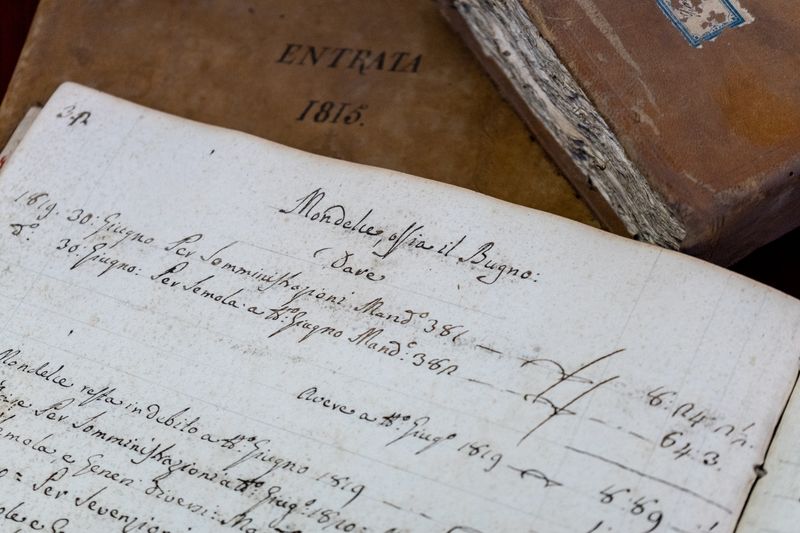 ENTRATA
1815.
Mondelce, ossia il Bugno:
Dare
1819. 30. Giugno Per Somministrazioni Mand.º 381
d.º 30. Giugno: Per Semola a tt.º Giugno Mand.º 382
64.3.
Avere a tt.º Giug.º 1819
Mondelce resta in debito a tt.º Giugno 1819
Per Somministrazioni a tt.º Giug.º 1820
Semola e Generi diversi:
Per Sovenzioni